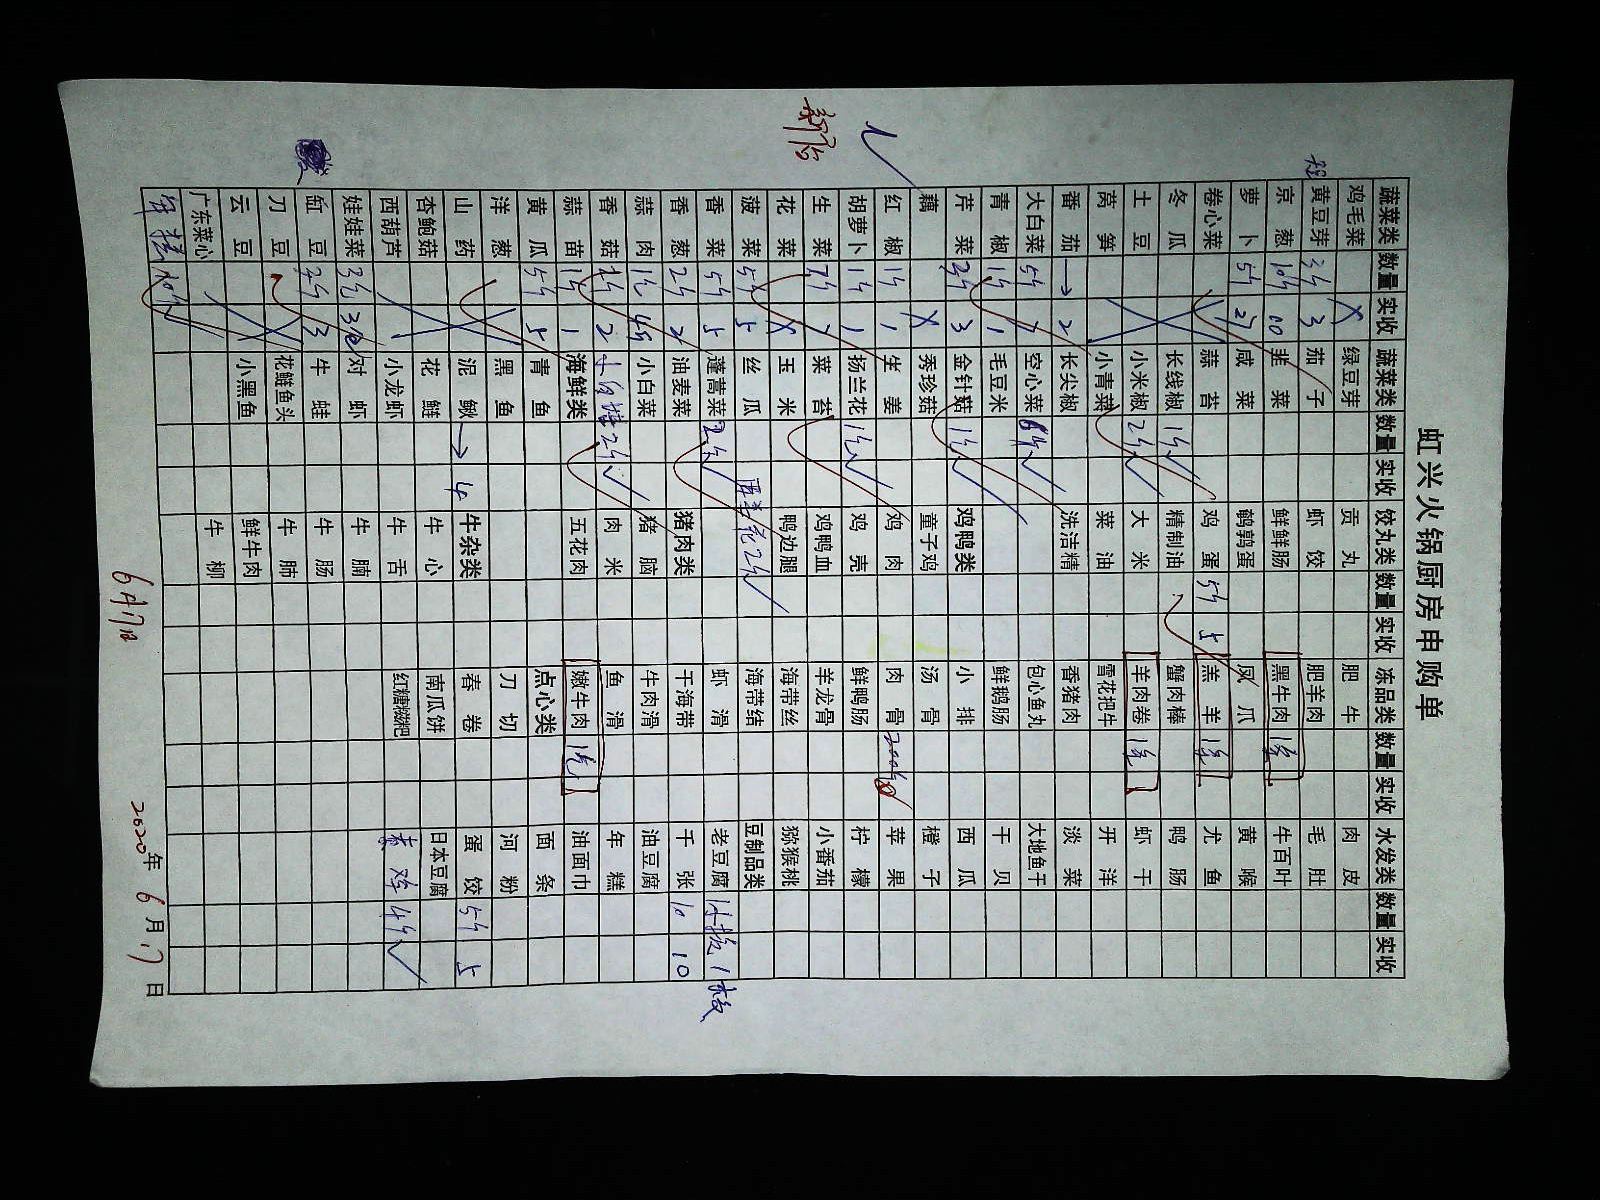 虹兴火锅厨房申购单
蔬菜类 数量 实收 蔬菜类 数量 实收 饺丸类 数量 实收 冻品类 数量 实收 水发类 数量 实收
鸡毛菜 X 绿豆芽 贡丸 肥牛 肉皮
黄豆芽 3斤 3 茄子 虾饺 肥羊肉 毛肚
京葱 10斤 10 韭菜 鲜鲜肠 黑牛肉 牛百叶
萝卜 5斤 咸菜 鹌鹑蛋 凤爪 黄喉
卷心菜 蒜苔 鸡蛋 5斤 5 羔羊 尤鱼
冬瓜 长线椒 1斤 精制油 蟹肉棒 鸭肠
土豆 小米椒 2斤 大米 羊肉卷 虾干
莴笋 小青菜 菜油 雪花把牛 开洋
番茄 → 2 长尖椒 洗洁精 香猪肉 淡菜
大白菜 5斤 7 空心菜 6斤 包心鱼丸 大地鱼干
青椒 1斤 1 毛豆米 鲜鹅肠 干贝
芹菜 3斤 3 金针菇 1斤 鸡鸭类 小排 西瓜
藕 X 秀珍菇 童子鸡 汤骨 橙子
红椒 1斤 1 生姜 鸡肉 肉骨 200斤 苹果
胡萝卜 1斤 1 杨兰花 1斤 鸡壳 鲜鸭肠 柠檬
生菜 7斤 7 菜苔 鸡鸭血 羊龙骨 小番茄
花菜 X 玉米 鸭边腿 海带丝 猕猴桃
菠菜 5斤 5 丝瓜 2斤 海带结 豆制品类
香菜 5斤 5 蓬蒿菜 2斤 虾滑 老豆腐 1板
香葱 2斤 2 油麦菜 猪肉类 干海带 千张 10 10
蒜肉 小白菜 猪脑 牛肉滑 油豆腐
香菇 2 2斤 肉米 鱼滑 年糕
蒜苗 1斤 1 海鲜类 五花肉 嫩牛肉 1包 油面巾
黄瓜 5斤 5 青鱼 点心类 面条
洋葱 黑鱼 刀切 河粉
山药 泥鳅 → 4 牛杂类 春卷 蛋饺 5斤 5
杏鲍菇 花鲢 牛心 南瓜饼 日本豆腐
西葫芦 小龙虾 牛舌 红糖糍粑 4斤
娃娃菜 3包 3包 对虾 牛腩
缸豆 3斤 3 牛蛙 牛肠
刀豆 花鲢鱼头 牛肺
云豆 小黑鱼 鲜牛肉
广东菜心 牛柳
10斤
6月17日 2020年6月17日